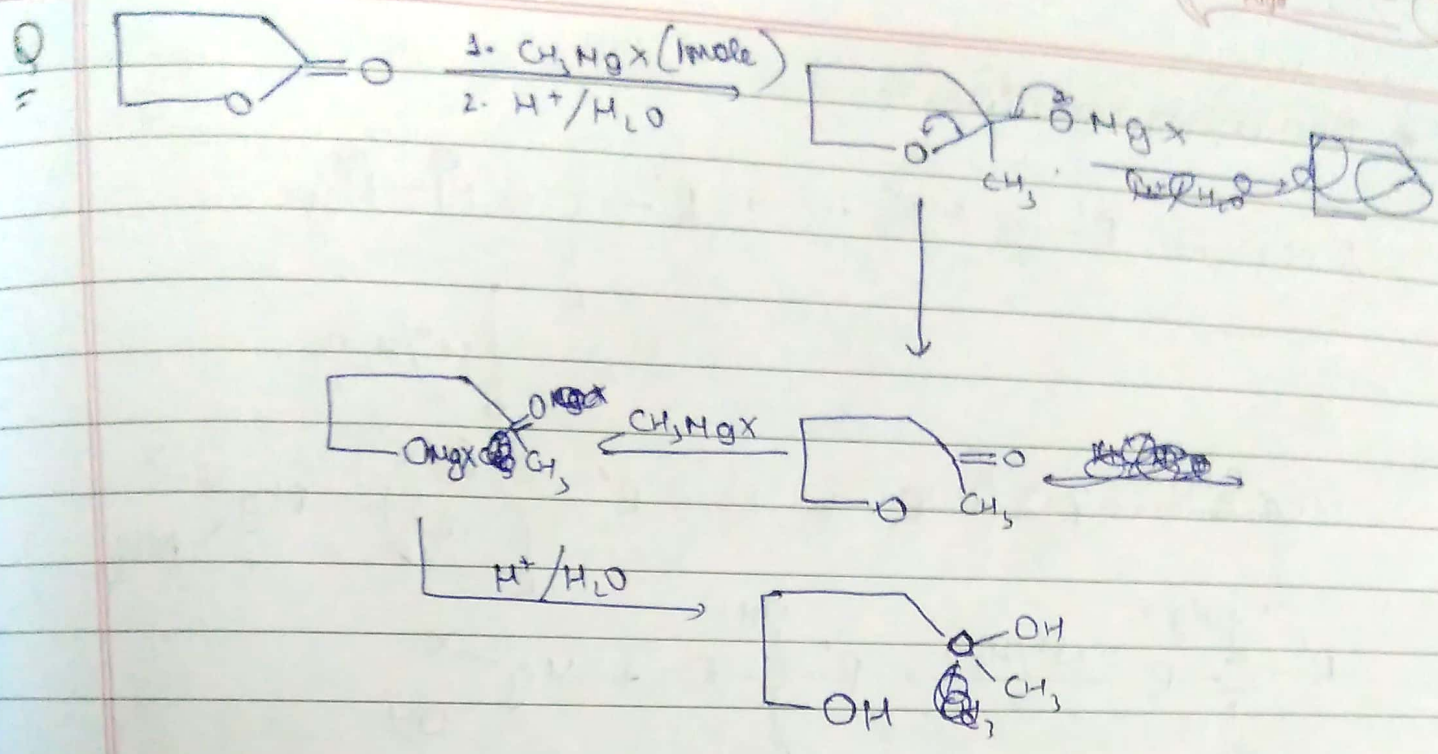 Q
O
=O
1. CH3MgX (1mole)
2. H+/H2O
O
CH3
OMgX
O
OMgX
CH3
CH3MgX
=O
O
CH3
H+/H2O
OH
CH3
OH